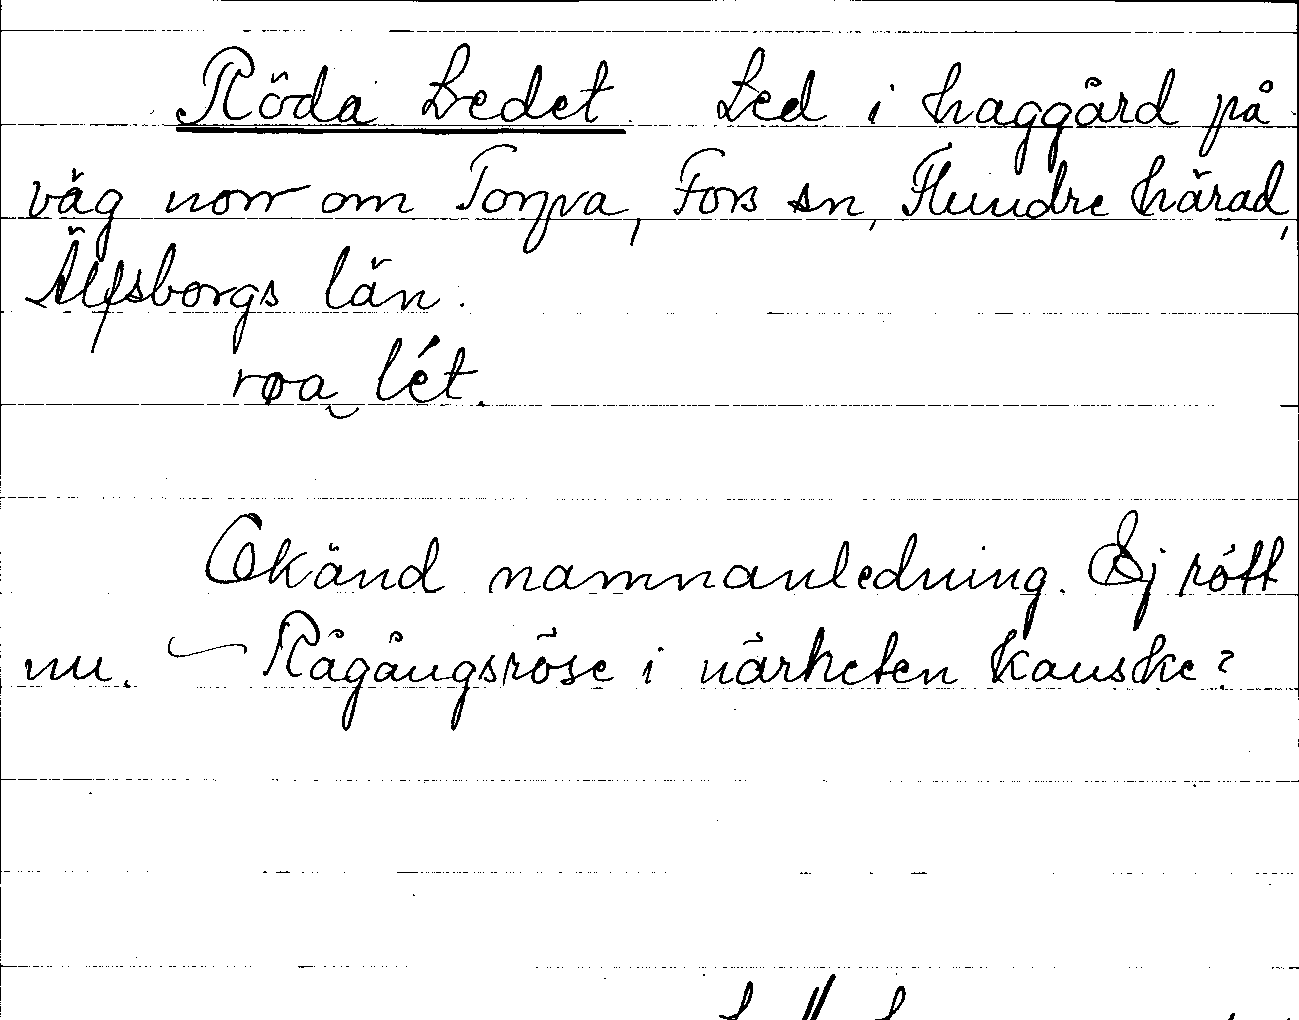 Röda Ledet. Led i haggård på
väg norr om Torpa, Fors sn, Flundre härad,
Älfsborgs län.
røa lét.
Okänd namnanledning. Ej rött
nu. — Rågångsröse i närheten kanske?